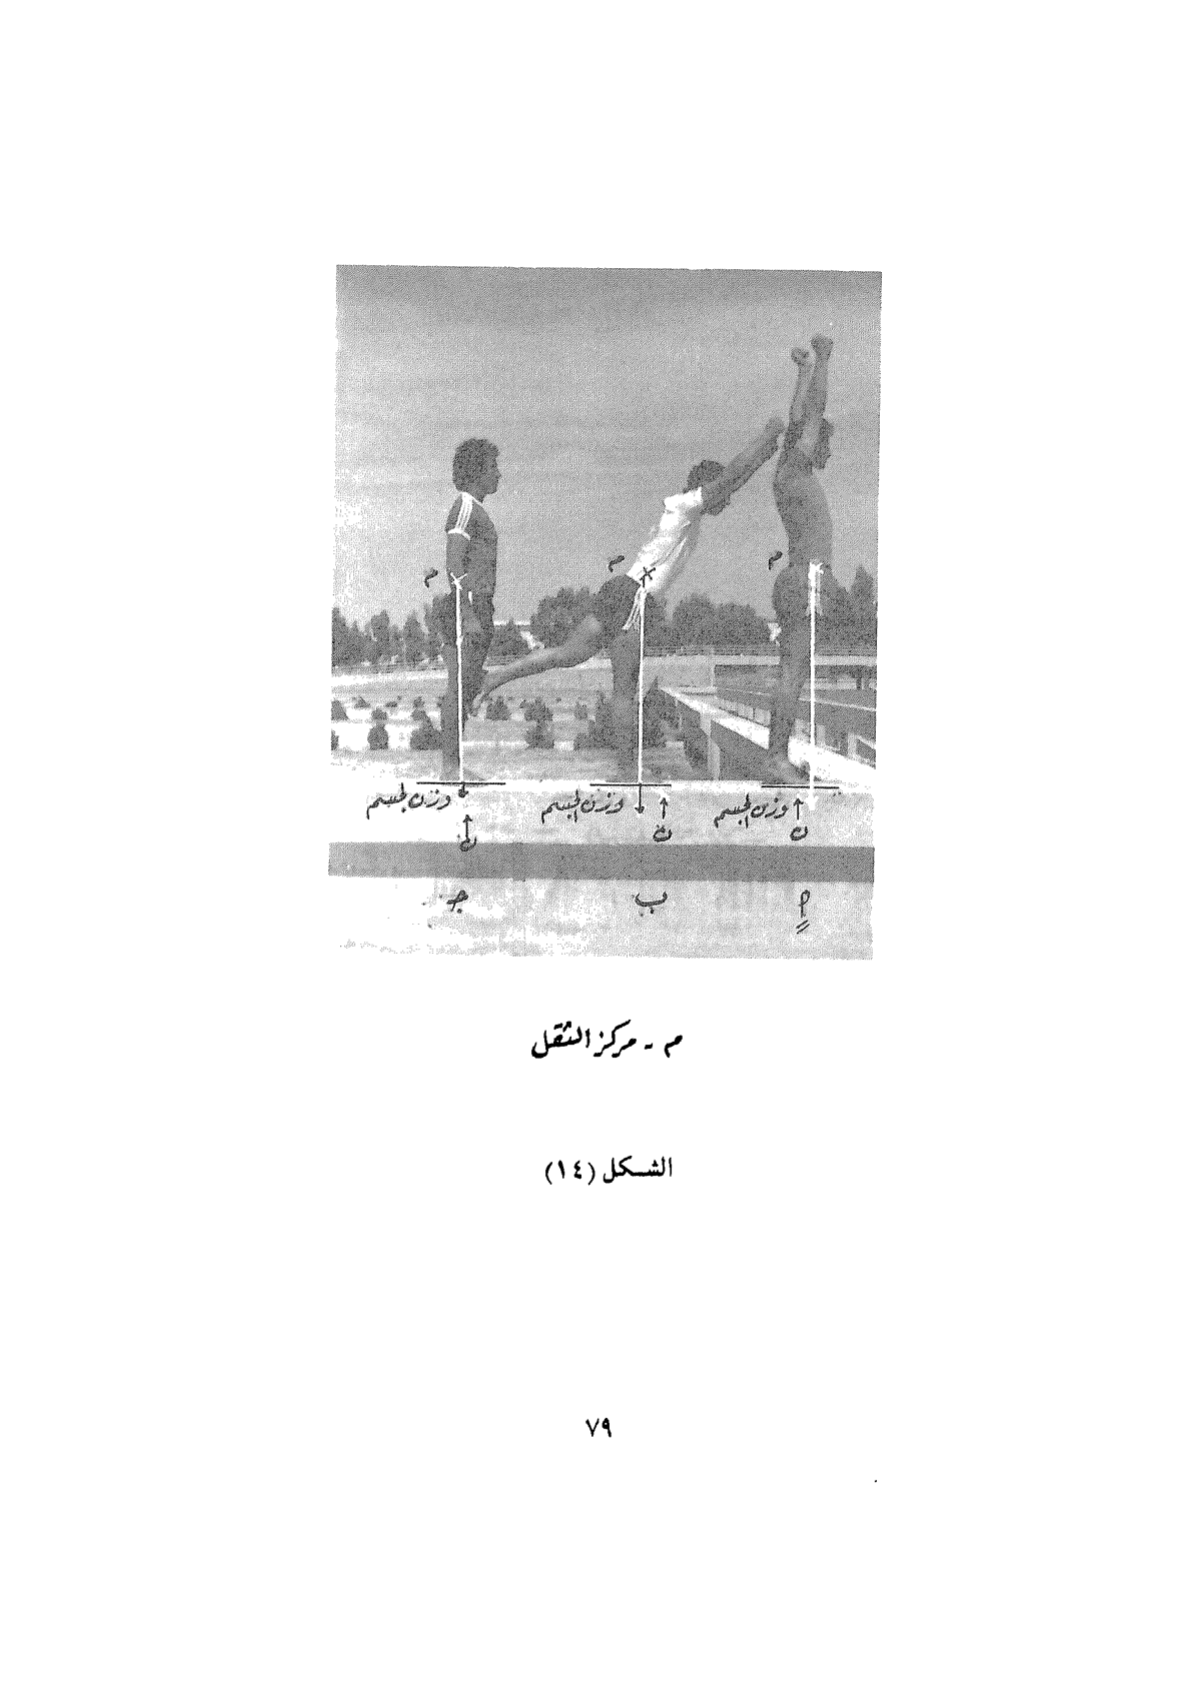 م
م
م
وزن الجسم
ن
وزن الجسم
ن
وزن الجسم
ن
أ
ب
جـ
م - مركز الثقل
الشكل (١٤)
٧٩